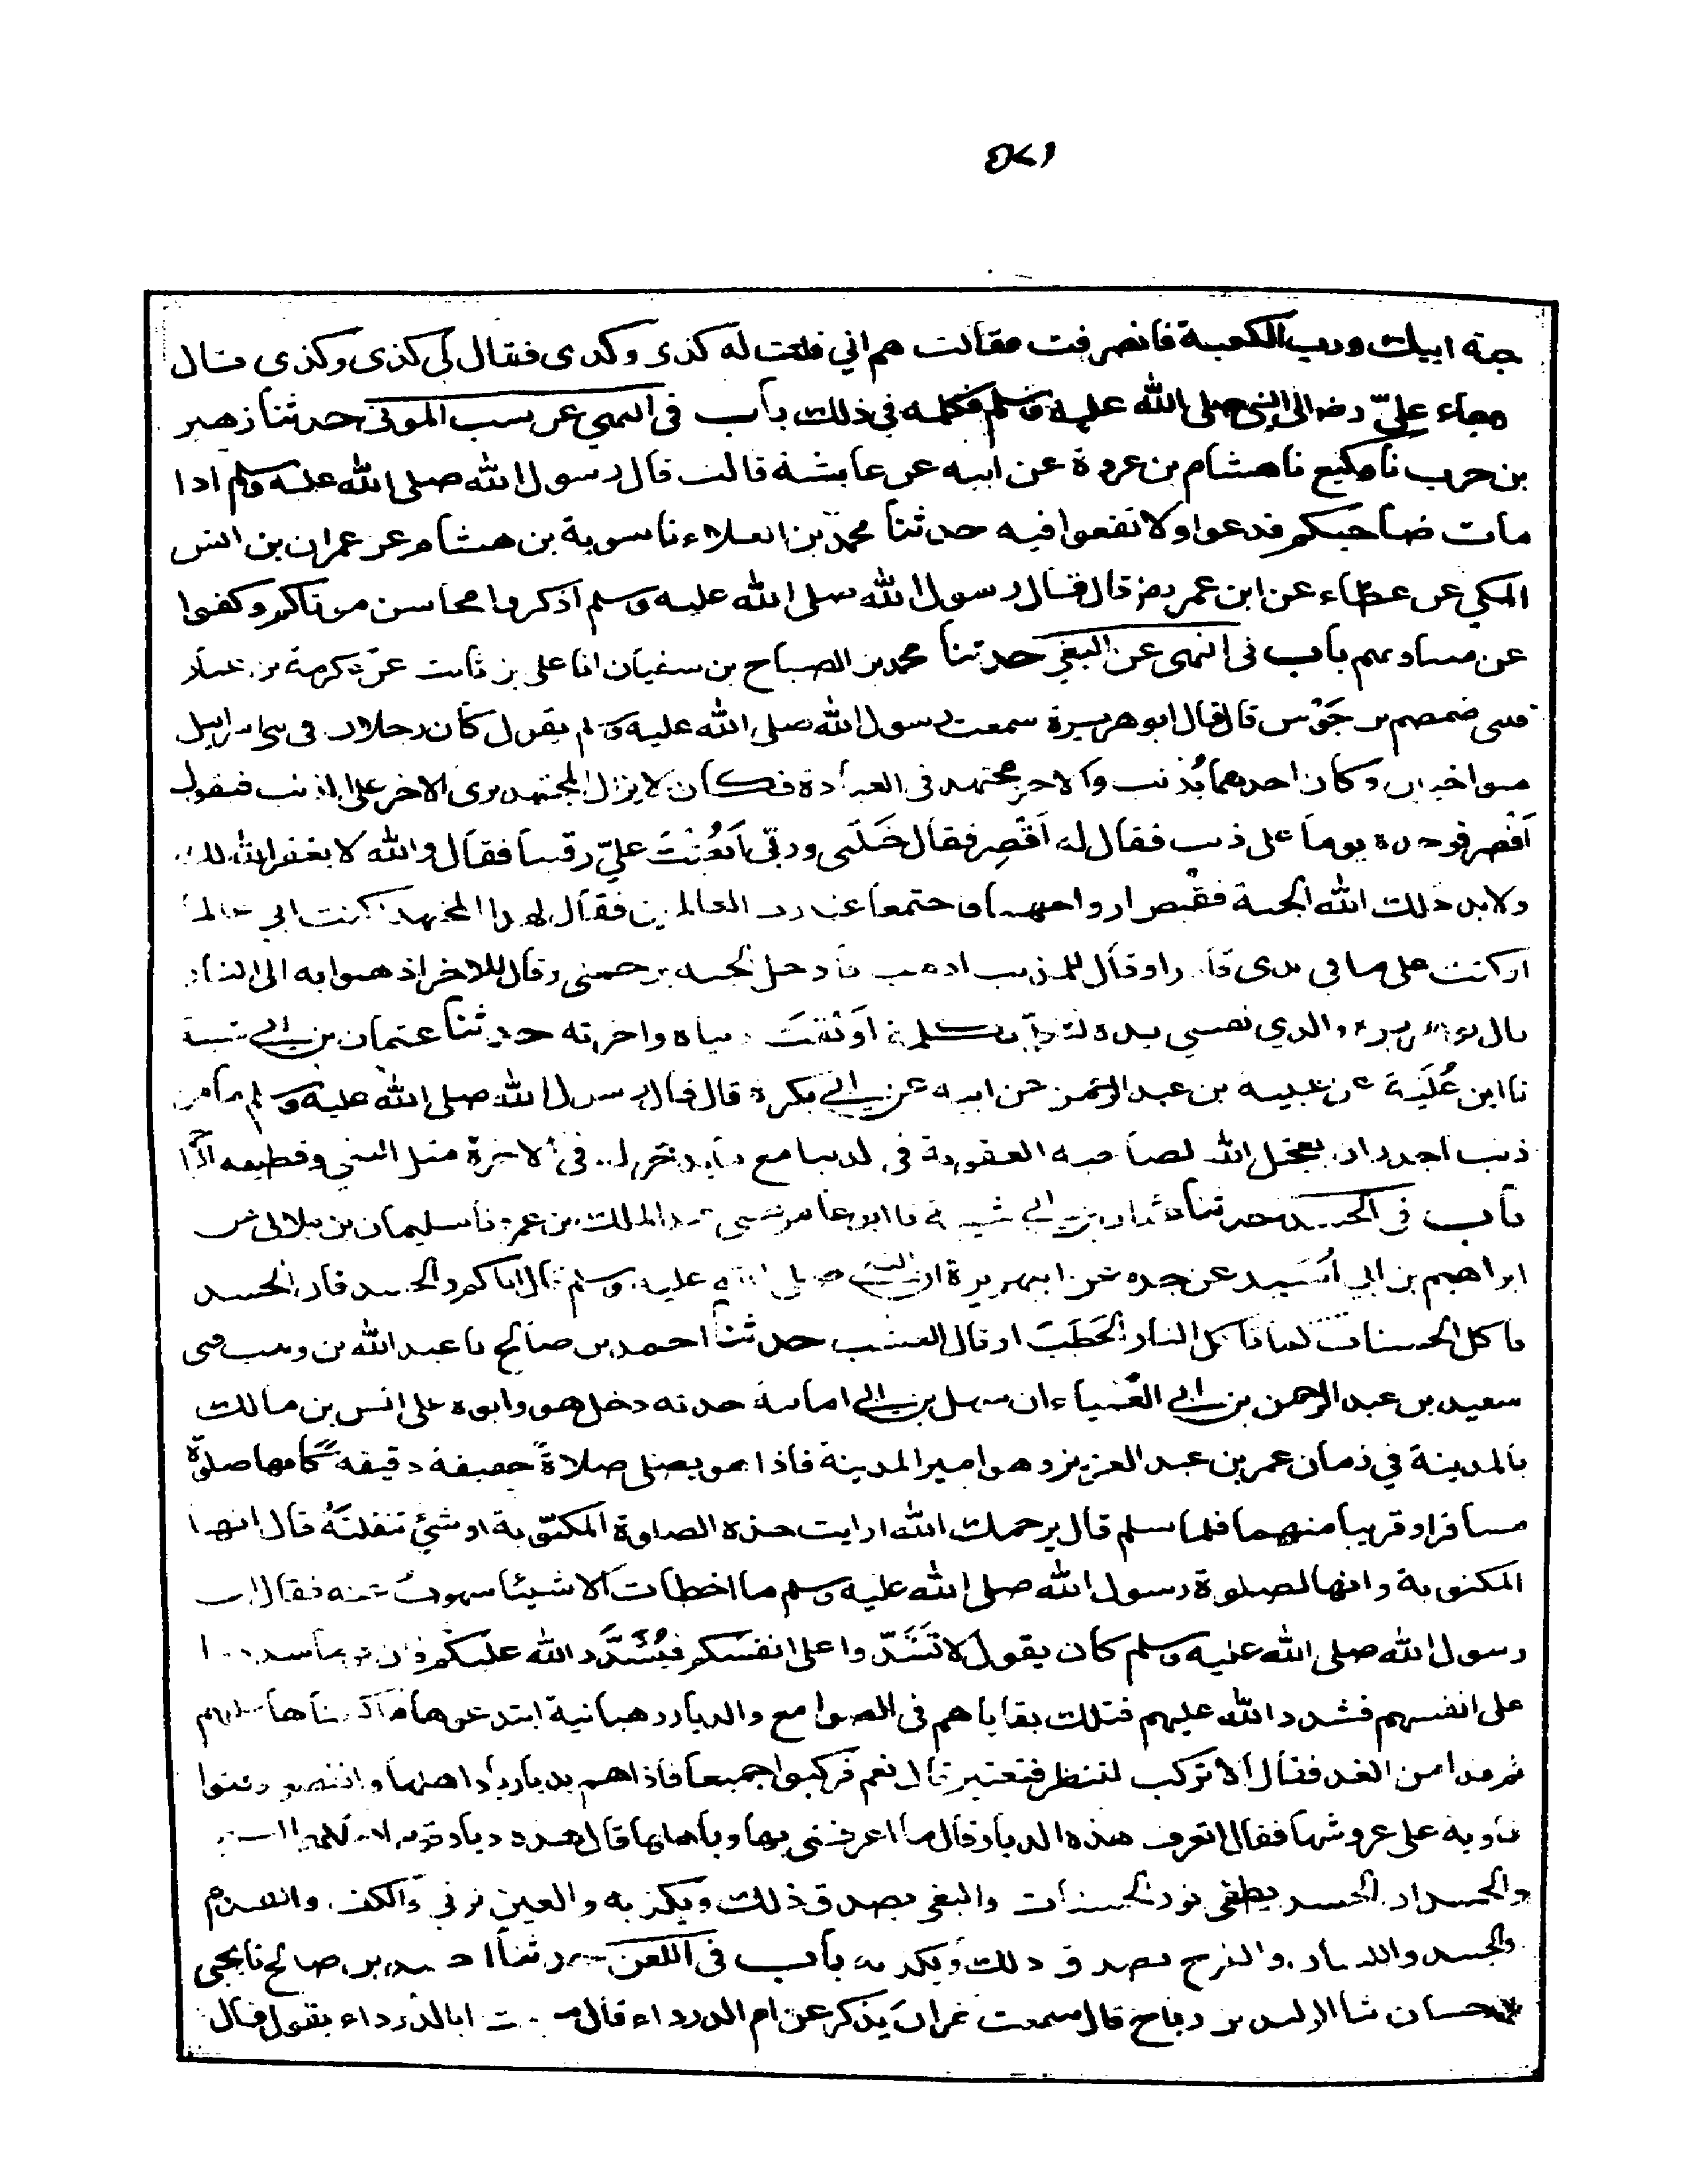 ٥٧٩
حبة ابيك ورب الكعبة فانصرفت فقالت لهم اني قلت له كذى وكذى فقال لى كذى وكذى قال
وجاء عليّ رضه الى النبي صلى الله عليه وسلم فكلمه في ذلك باب فى النهي عن سب الموتى حدثنا زهير
بن حرب نا وكيع نا هشام بن عروة عن ابيه عن عايشة قالت قال رسول الله صلى الله عليه وسلم اذا
مات صاحبكم فدعوا ولا تقعوا فيه حدثنا محمد بن العلاء نا معوية بن هشام عن عمران بن انس
المكي عن عطاء عن ابن عمر رضه قال قال رسول الله صلى الله عليه وسلم اذكروا محاسن موتاكم وكفوا
عن مساويهم باب فى النهى عن البغى حدثنا محمد بن الصباح بن سفيان انا على بن ثابت عن عكرمة بن عمار
ضمضم بن جَوْس قال قال ابو هريرة سمعت رسول الله صلى الله عليه وسلم يقول كان رجلان فى بنى اسرايل
متواخيين وكان احدهما يُذنب والاخر مجتهد فى العبادة فكان لا يزال المجتهد يرى الاخر على الذنب فيقول
اَقْصر فوجده يوما على ذنب فقال له اَقْصِر فقال خَلّنى وربّى اَبُعِثْتَ عليّ رقيبا فقال والله لا يغفر الله لك
ولا يدخلك الله الجنة فقبض ارواحهما فاجتمعا عند رب العالمين فقال لهذا المجتهد اكنت بي عالما
او كنت على ما في يدى قادرا وقال للمذنب اذهب فادخل الجنة برحمتى وقال للاخر اذهبوا به الى النار
قال ابو هريرة والذي نفسي بيده لتكلم بكلمة اَوْبَقَتْ دنياه واخرته حدثنا عثمان بن ابي شيبة
نا ابن عُلَيّة عن عيينة بن عبد الرحمن عن ابيه عن ابي بكرة قال قال رسول الله صلى الله عليه وسلم ما من
ذنب اجدر ان يعجل الله لصاحبه العقوبة فى الدنيا مع ما يدخر له فى الاخرة مثل البغي وقطيعه
باب فى الحسد حدثنا عثمان بن ابي شيبة نا ابو عامر يعنى عبد الملك بن عمرو نا سليمان بن بلال عن
ابراهيم بن ابي اُسَيد عن جده عن ابي هريرة ان النبي صلى الله عليه وسلم قال اياكم والحسد فان الحسد
ياكل الحسنات كما تاكل النار الحَطَبَ او قال العشب حدثنا احمد بن صالح نا عبد الله بن وهب
سعيد بن عبد الرحمن بن ابي العَمْياء ان سهل بن ابي امامة حدثه دخل هو وابوه على انس بن مالك
بالمدينة في زمان عمر بن عبد العزيز وهو امير المدينة فاذا هو يصلى صلاةً خفيفة دقيقه كانها صلوة
مسافر او قريبا منهما فلما سلم قال يرحمك الله ارايت هذه الصلوة المكتوبة او شئ تنفلتَهُ قال انها
المكتوبة وانها لصلوة رسول الله صلى الله عليه وسلم ما اخطات الا شيئا سهوت عنه فقال ان
رسول الله صلى الله عليه وسلم كان يقول لا تُشَدّدوا على انفسكم فيُشَدَّد الله عليكم فان قوما شددوا
على انفسهم فشدد الله عليهم فتلك بقاياهم فى الصوامع والديار رهبانية ابتدعوها ما كتبناها عليهم
ثم غدا من الغد فقال الا تركب لتنظر فتعتبر قال نعم فركبوا جميعا فاذا هم بديار باد اهلها وانقضوا وفنوا
خاوية على عروشها فقال اتعرف هذه الديار قال ما اعرفنى بها وباهلها قال هذه ديار قوم اهلكهم البغى
والحسد ان الحسد يطفى نور الحسنات والبغى يصدق ذلك ويكذبه والعين تزني والكف والقدم
والجسد واللسان والفرج يصدق ذلك ويكذبه باب فى اللعن حدثنا احمد بن صالح نا يحيى
بن حسان نا الوليد بن رباح قال سمعت نمران يذكر عن ام الدرداء قال سمعت ابا الدرداء يقول قال